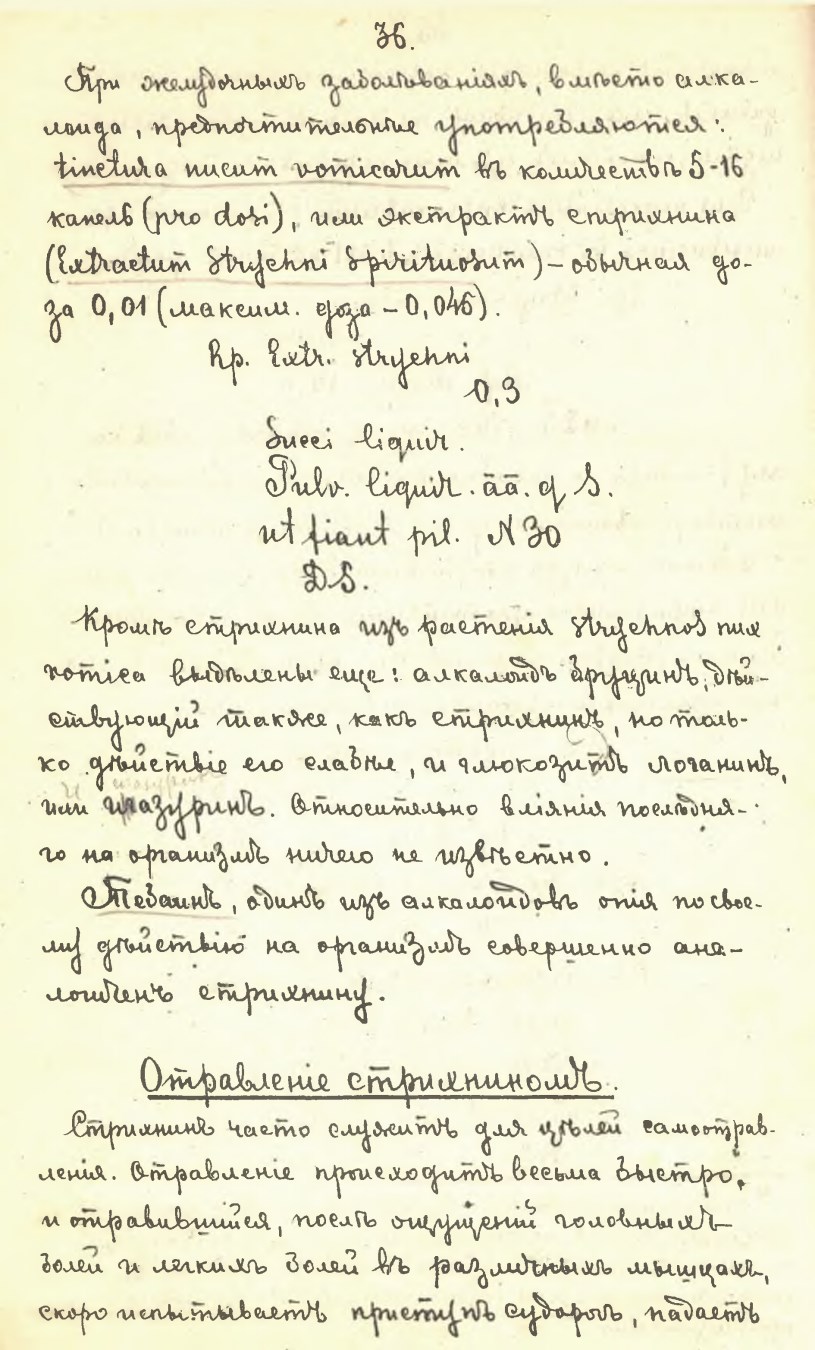 36.
При желудочныхъ заболѣваніяхъ, вмѣсто алка-
лоида, предпочтительнѣе употребляются:
tinctura nucum vomicarum въ количествѣ 5-16
капель (pro dosi), или экстрактъ стрихнина
(Extractum Strychni Spirituosum) – обычная до-
за 0,01 (максим. доза – 0,045).
Rp. Extr. Strychni
0,3
Succi liquir.
Pulv. liquir. āā. q S.
ut fiant pil. N 30
DS.
Кромѣ стрихнина изъ растенія Strychnos nux
vomica выдѣлены еще: алкалоидъ бруцинъ, дѣй-
ствующій также, какъ стрихнинъ, но толь-
ко дѣйствіе его слабѣе, и глюкозитъ логанинъ,
или игазуринъ. Относительно вліянія послѣдня-
го на организмъ ничего не извѣстно.
Тебаинъ, одинъ изъ алкалоидовъ опія по свое-
му дѣйствію на организмъ совершенно ана-
логиченъ стрихнину.
Отравленіе стрихниномъ.
Стрихнинъ часто служитъ для цѣлей самоотрав-
ленія. Отравленіе происходитъ весьма быстро,
и отравившійся, послѣ ощущеній головныхъ
болей и легкихъ болей въ различныхъ мышцахъ,
скоро испытываетъ приступъ судорогъ, падаетъ